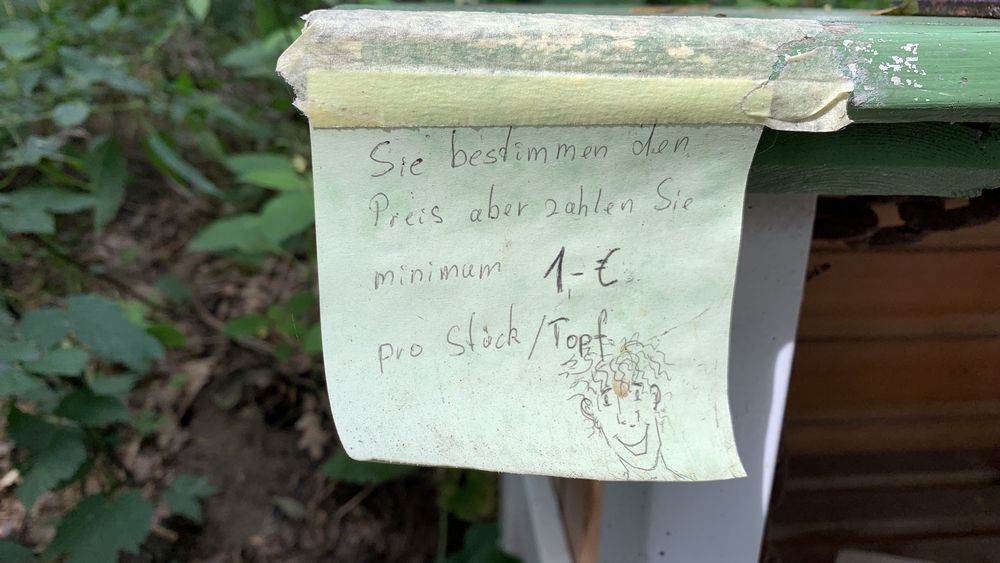 Sie bestimmen den
Preis aber zahlen Sie
minimum 1,- €
pro Stück/Topf